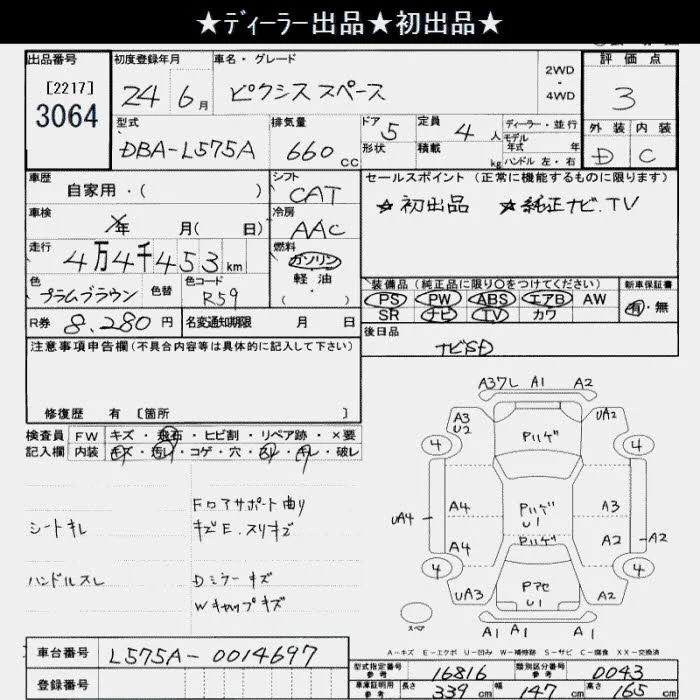 ★ディーラー出品★初出品★
出品番号 初度登録年月 車名・グレード 2WD・4WD 評価点
[2217]
3064
24 6月 ピクシススペース 3
型式 排気量 ドア 5 定員 4人 ディーラー・並行 外装 内装
モデル年式 年
DBA-L575A 660cc 形状 積載 kg ハンドル 左・右 D C
車歴 シフト セールスポイント(正常に機能するものに限ります)
自家用・( ) CAT ☆初出品 ☆純正ナビ.TV
車検 冷房
年 月( 日) AAC
走行 燃料
4万4千453km ガソリン
軽油
( ・ )
色 色替 色コード 装備品(純正品に限り○をつけてください) 新車保証書
プラムブラウン R59 PS PW ABS エアB AW 有・無
SR ナビ TV カワ
R券 8.280円 名変通知期限 月 日 後日品
ナビSD
注意事項申告欄(不具合内容等は具体的に記入して下さい)
修復歴 有 [箇所 ]
検査員 FW キズ・飛石・ヒビ割・リペア跡・×要
記入欄 内装 キズ・汚レ・コゲ・穴・スレ・キレ・破レ
Fロアサポート曲リ
シートキレ キズE.スリキズ
ハンドルスレ Dミラーキズ
Wキャップキズ
A37L A1 A2
A3 U2 Pハゲ UA2
4 4
A4 Pハゲ U1 A3
UA4 A2 A2
A4 Pハゲ
4 4
UA3 Pアセ U1 A2
スペア A1 A1
A-キズ E-エクボ U-凹み W-補修跡 S-サビ C-腐食 XX-交換済
車台番号 L575A-0014697
型式指定番号 16816 類別区分番号 0043
登録番号 車庫証明用参考 長さ 339cm 幅 147cm 高さ 165cm